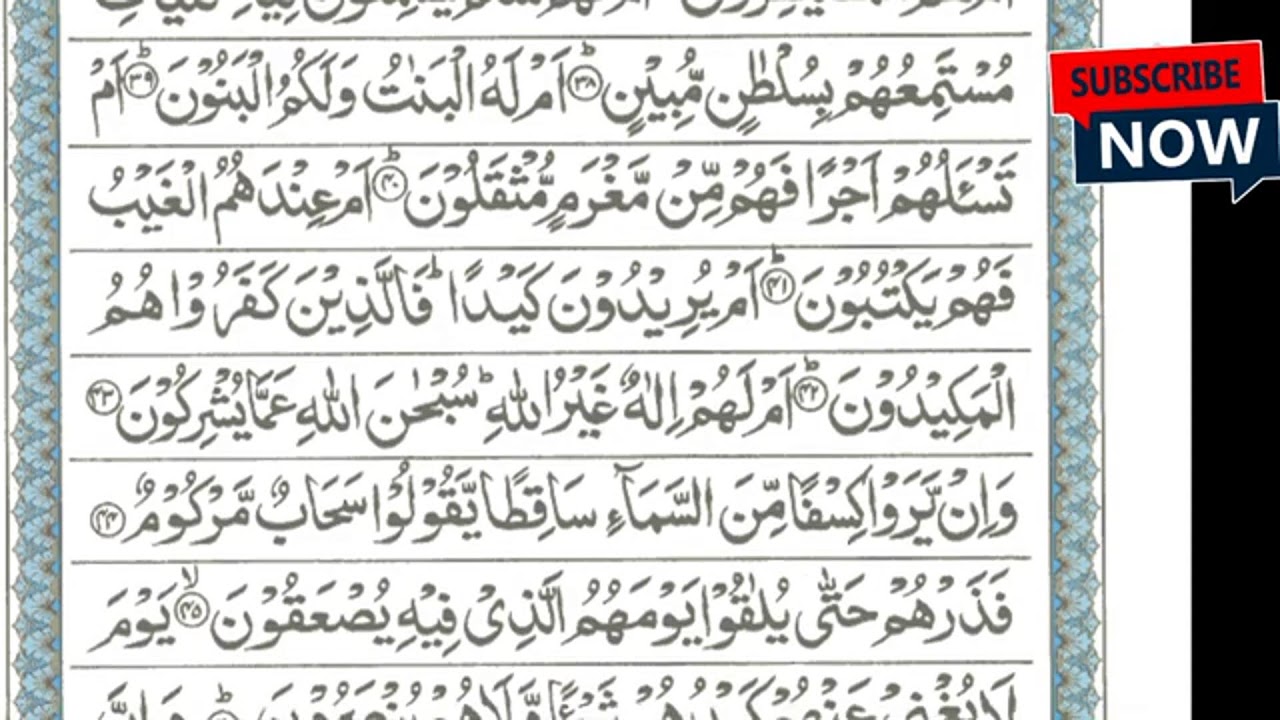 مُسْتَمِعُهُمْ بِسُلْطٰنٍ مُّبِيْنٍ ؕ﴿۳۸﴾ اَمْ لَهُ الْبَنٰتُ وَلَكُمُ الْبَنُوْنَ ؕ﴿۳۹﴾ اَمْ
تَسْـَٔلُهُمْ اَجْرًا فَهُمْ مِّنْ مَّغْرَمٍ مُّثْقَلُوْنَ ؕ﴿۴۰﴾ اَمْ عِنْدَهُمُ الْغَيْبُ
فَهُمْ يَكْتُبُوْنَ ؕ﴿۴۱﴾ اَمْ يُرِيْدُوْنَ كَيْدًا ؕ فَالَّذِيْنَ كَفَرُوْا هُمُ
الْمَكِيْدُوْنَ ؕ﴿۴۲﴾ اَمْ لَهُمْ اِلٰهٌ غَيْرُ اللّٰهِ ؕ سُبْحٰنَ اللّٰهِ عَمَّا يُشْرِكُوْنَ ﴿۴۳﴾
وَاِنْ يَّرَوْا كِسْفًا مِّنَ السَّمَآءِ سَاقِطًا يَّقُوْلُوْا سَحَابٌ مَّرْكُوْمٌ ﴿۴۴﴾
فَذَرْهُمْ حَتّٰى يُلٰقُوْا يَوْمَهُمُ الَّذِىْ فِيْهِ يُصْعَقُوْنَ ۙ﴿۴۵﴾ يَوْمَ
SUBSCRIBE
NOW